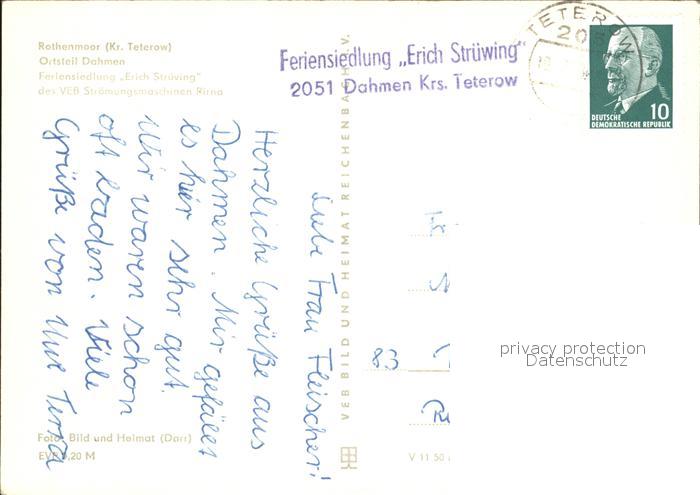 Rothenmoor (Kr. Teterow)
Ortsteil Dahmen
Feriensiedlung „Erich Strüving"
des VEB Strömungsmaschinen Pirna
Feriensiedlung „Erich Strüwing"
2051 Dahmen Krs. Teterow
TETEROW
DEUTSCHE
DEMOKRATISCHE REPUBLIK
10
Liebe Frau Fleischer!
Herzliche Grüße aus
Dahmen. Mir gefällt
es hier sehr gut.
Wir waren schon
oft baden. Viele
Grüße von
VEB BILD UND HEIMAT REICHENBACH I. V.
83
privacy protection
Datenschutz
Foto: Bild und Heimat (Darr)
EVP 0,20 M
V 11 50